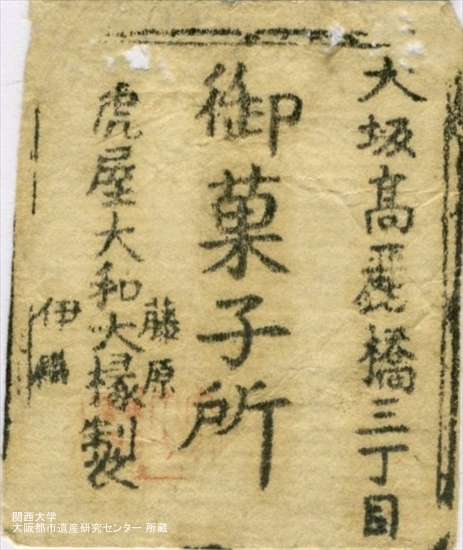 大坂高麗橋三丁目
御菓子所
虎屋大和大掾製
藤原
伊
関西大学
大阪都市遺産研究センター 所蔵